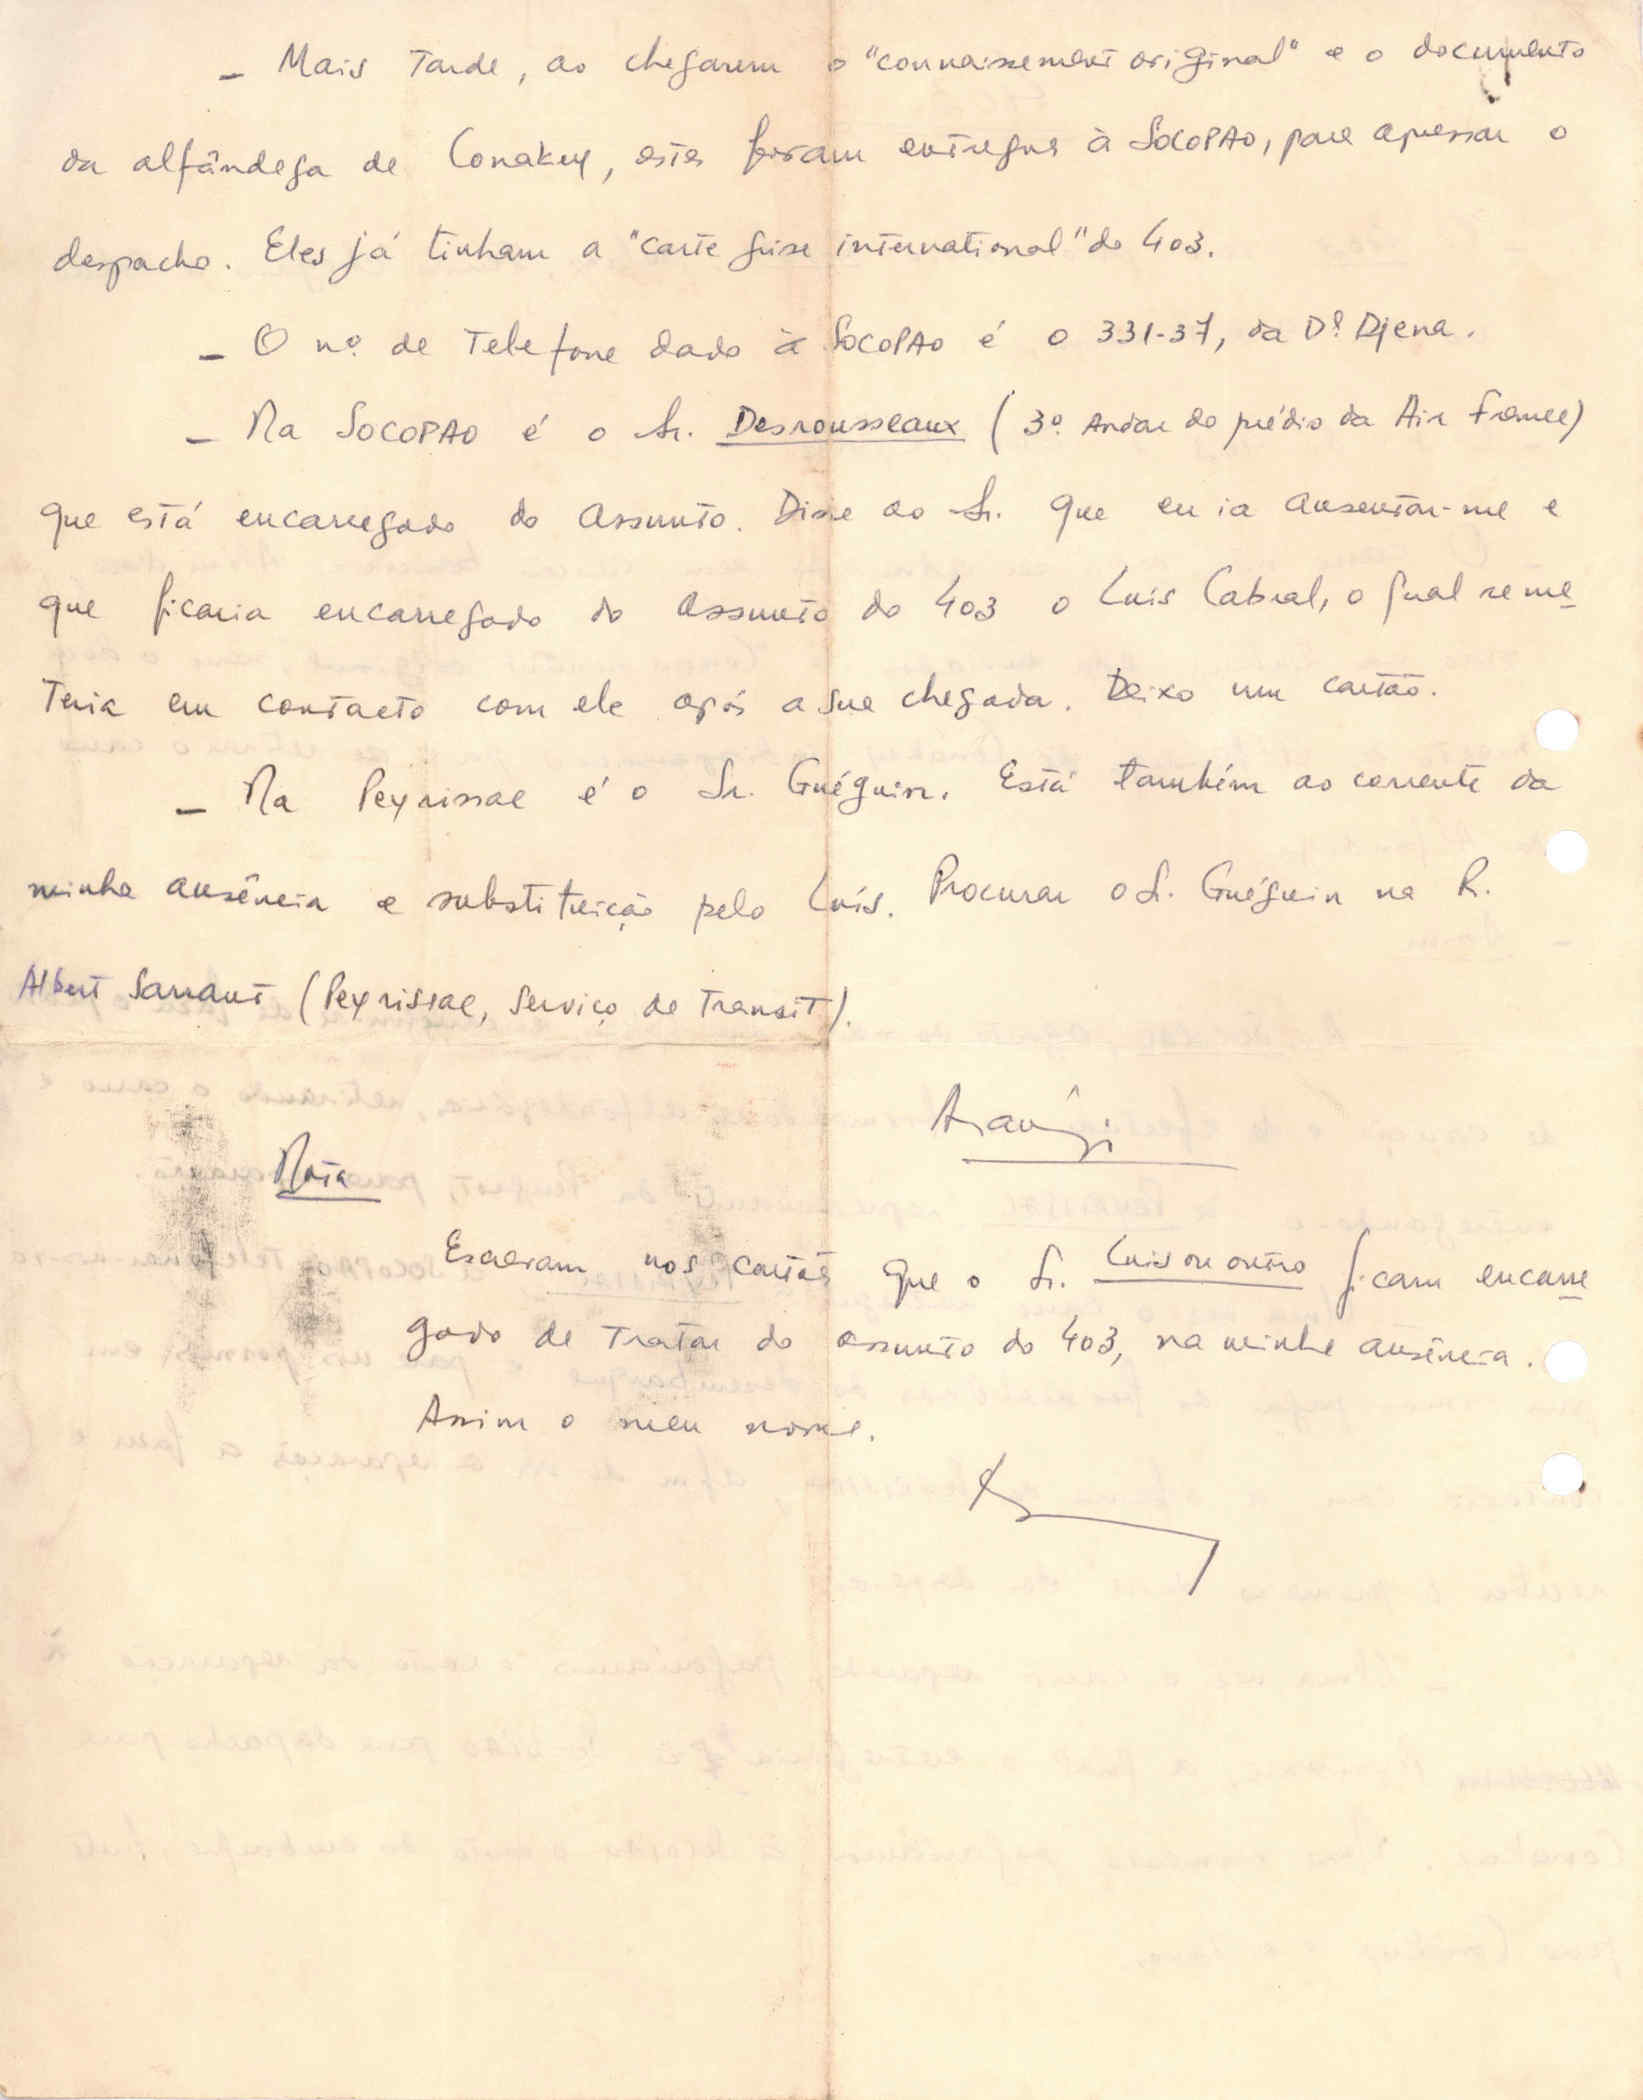 - Mais Tarde, ao chegarem o "connaissement original" e o documento
da alfândega de Conakry, estes foram entregues à SOCOPAO, para apressar o
despacho. Eles já tinham a "carte grise international" do 403.
- O nº. de Telefone dado à SOCOPAO é o 331-37, da Dª Djena.
- Na SOCOPAO é o Sr. Desrousseaux (3º. Andar do prédio da Air France)
que está encarregado do assunto. Disse ao Sr. que eu ia ausentar-me e
que ficaria encarregado do assunto do 403 o Luis Cabral, o qual se me-
teria em contacto com ele após a sua chegada. Deixo um cartão.
- Na Peyrissac é o Sr. Guéguin. Está também ao corrente da
minha ausência e substituição pelo Luís. Procurar o Sr. Guéguin na R.
Albert Sarraut (Peyrissac, Serviço de Transit).
Araújo
Nota
Escreram nos cartões que o Sr. Luis ou outro ficam encarre-
gado de Tratar do assunto do 403, na minha ausência.
Assim o meu nome.